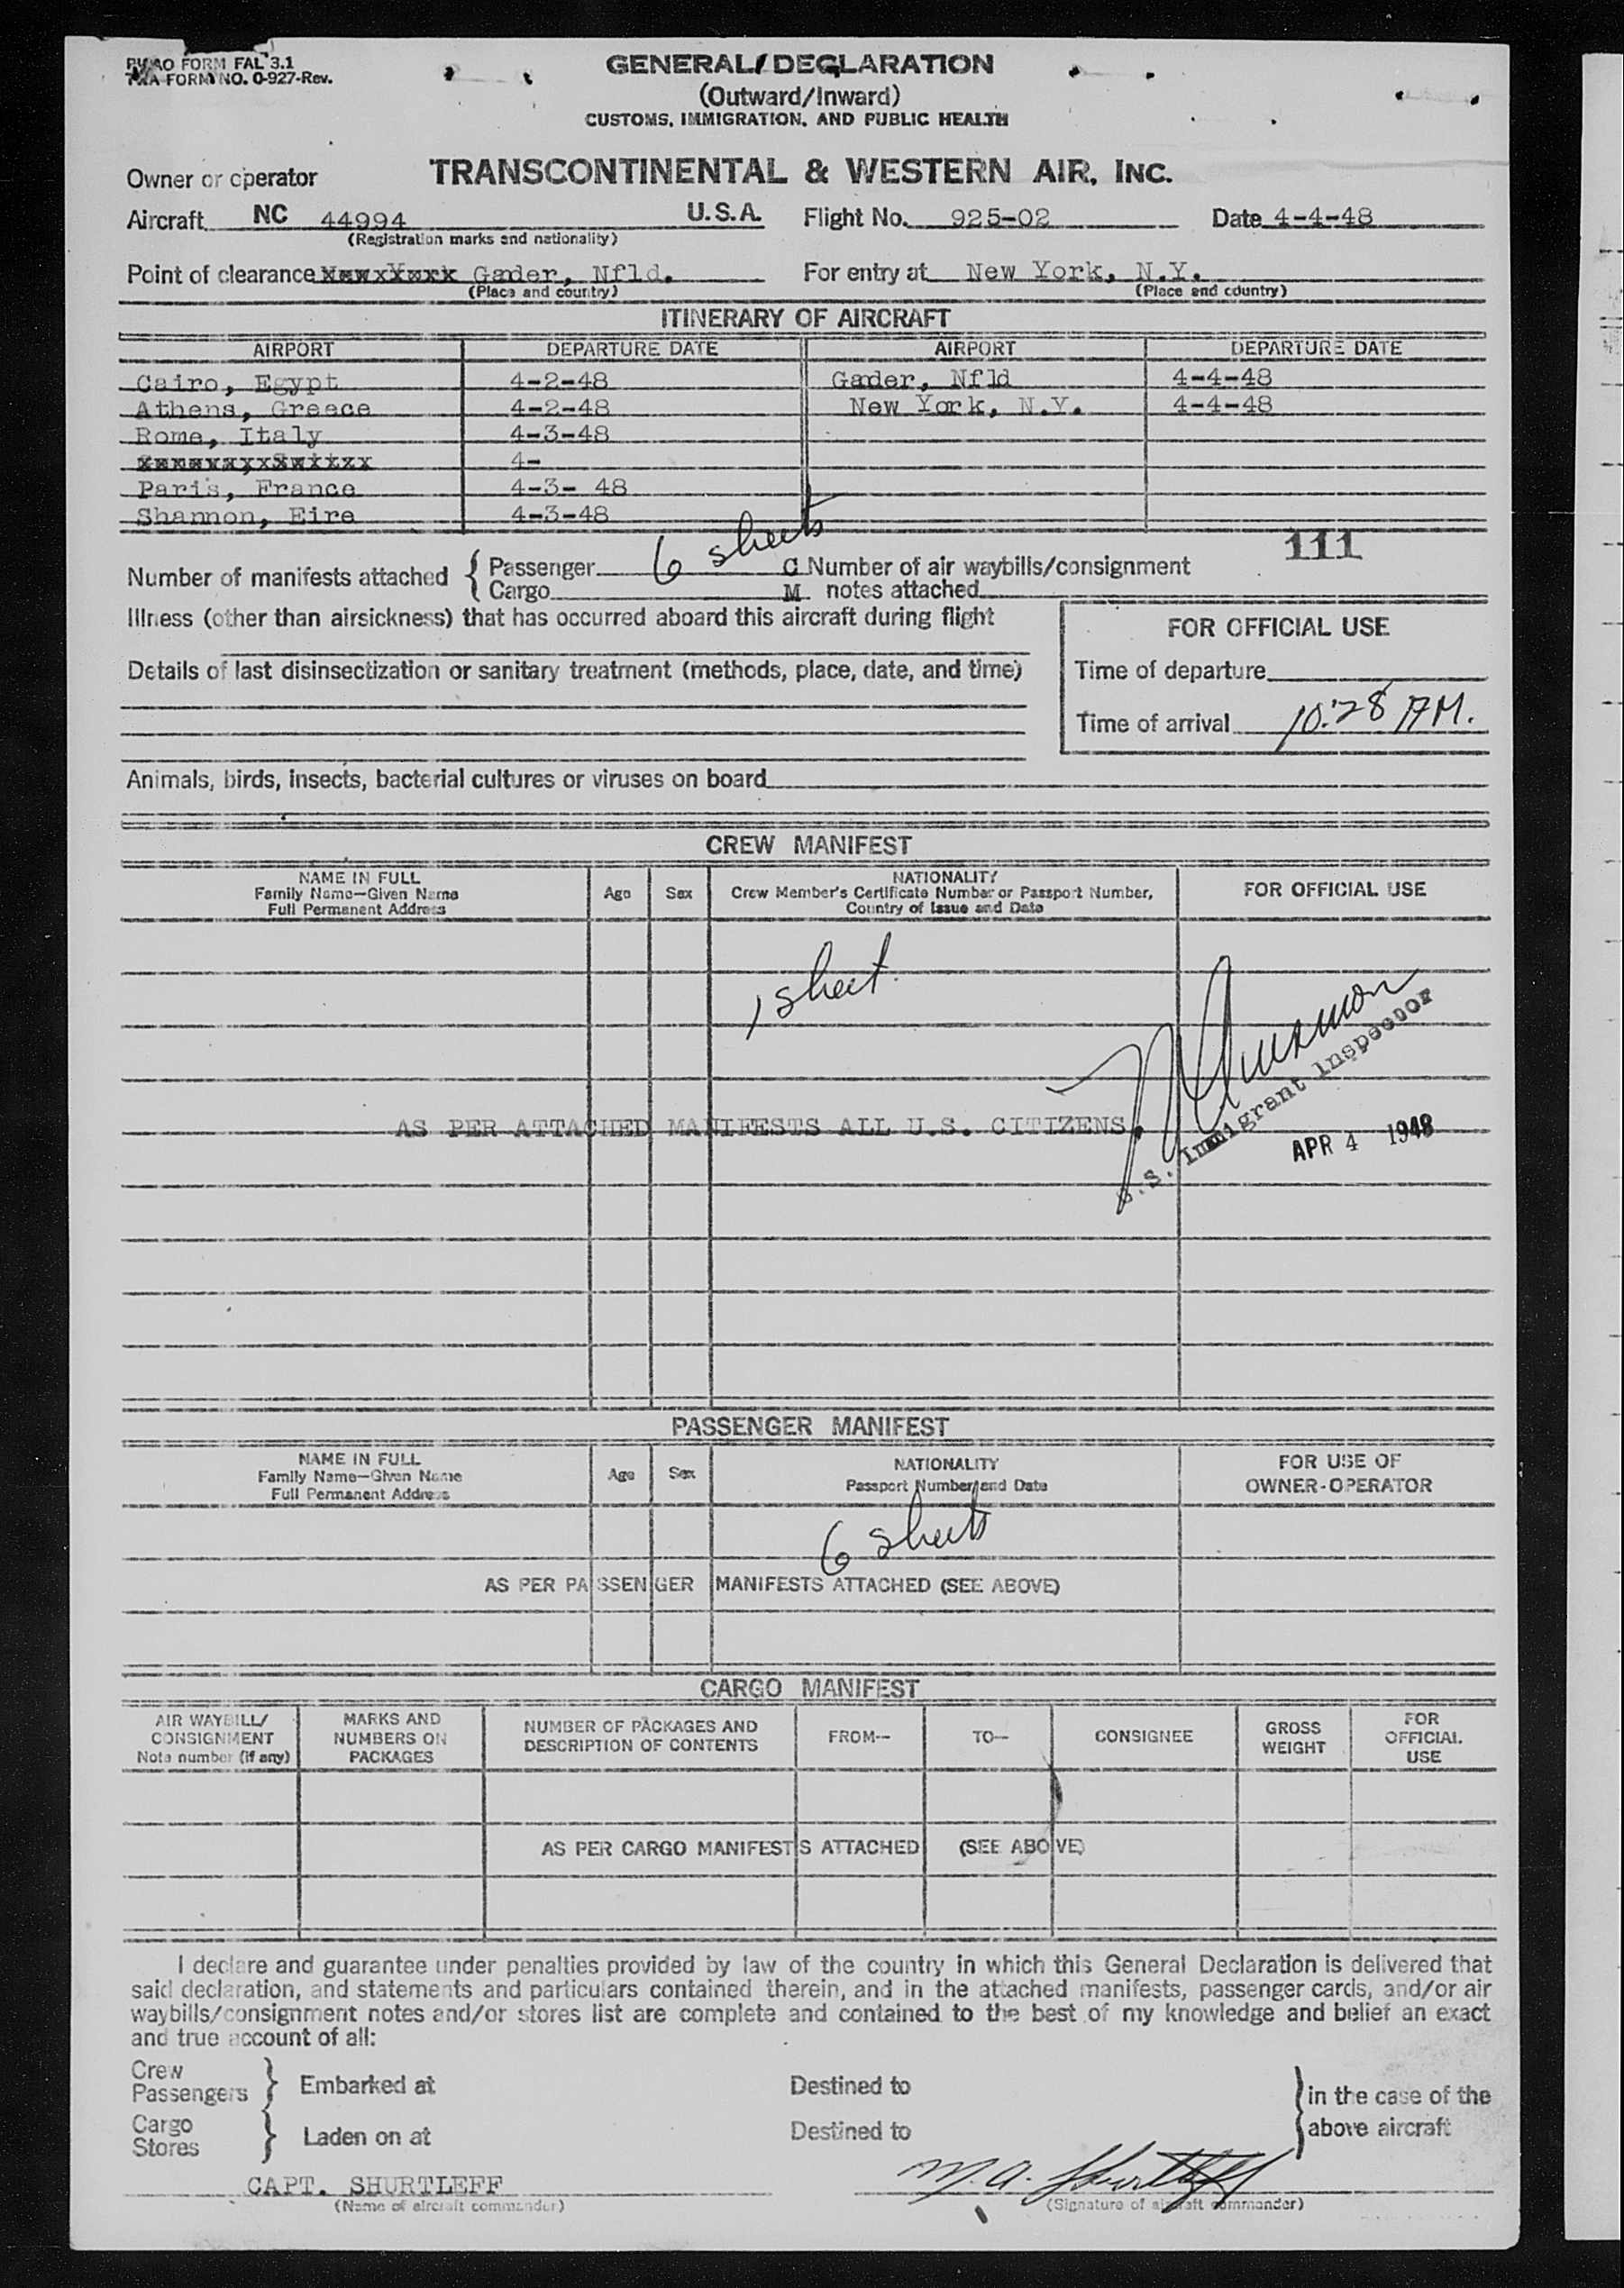 PICAO FORM FAL 3.1
TWA FORM NO. O-927-Rev.
GENERAL DECLARATION
(Outward/Inward)
CUSTOMS, IMMIGRATION, AND PUBLIC HEALTH
Owner or operator TRANSCONTINENTAL & WESTERN AIR, INC.
Aircraft NC 44994 U.S.A. Flight No. 925-02 Date 4-4-48
(Registration marks and nationality)
Point of clearance Gader, Nfld. For entry at New York, N.Y.
(Place and country) (Place and country)
ITINERARY OF AIRCRAFT
AIRPORT DEPARTURE DATE AIRPORT DEPARTURE DATE
Cairo, Egypt 4-2-48 Gader, Nfld 4-4-48
Athens, Greece 4-2-48 New York, N.Y. 4-4-48
Rome, Italy 4-3-48
4-
Paris, France 4-3- 48
Shannon, Eire 4-3-48
111
Number of manifests attached { Passenger 6 sheets C Number of air waybills/consignment
Cargo M notes attached
Illness (other than airsickness) that has occurred aboard this aircraft during flight
FOR OFFICIAL USE
Details of last disinsectization or sanitary treatment (methods, place, date, and time)
Time of departure
Time of arrival 10:28 AM.
Animals, birds, insects, bacterial cultures or viruses on board
CREW MANIFEST
NAME IN FULL
Family Name—Given Name
Full Permanent Address
Age Sex
NATIONALITY
Crew Member's Certificate Number or Passport Number,
Country of Issue and Date
FOR OFFICIAL USE
1 sheet.
AS PER ATTACHED MANIFESTS ALL U.S. CITIZENS.
U.S. Immigrant Inspector
APR 4 1948
PASSENGER MANIFEST
NAME IN FULL
Family Name—Given Name
Full Permanent Address
Age Sex
NATIONALITY
Passport Number and Date
FOR USE OF
OWNER-OPERATOR
6 sheets
AS PER PASSENGER MANIFESTS ATTACHED (SEE ABOVE)
CARGO MANIFEST
AIR WAYBILL/
CONSIGNMENT
Note number (if any)
MARKS AND
NUMBERS ON
PACKAGES
NUMBER OF PACKAGES AND
DESCRIPTION OF CONTENTS
FROM—
TO—
CONSIGNEE
GROSS
WEIGHT
FOR
OFFICIAL
USE
AS PER CARGO MANIFESTS ATTACHED (SEE ABOVE)
I declare and guarantee under penalties provided by law of the country in which this General Declaration is delivered that
said declaration, and statements and particulars contained therein, and in the attached manifests, passenger cards, and/or air
waybills/consignment notes and/or stores list are complete and contained to the best of my knowledge and belief an exact
and true account of all:
Crew
Passengers } Embarked at Destined to
Cargo
Stores } Laden on at Destined to
} in the case of the
above aircraft
CAPT. SHURTLEFF M. A. Shurtleff
(Name of aircraft commander) (Signature of aircraft commander)